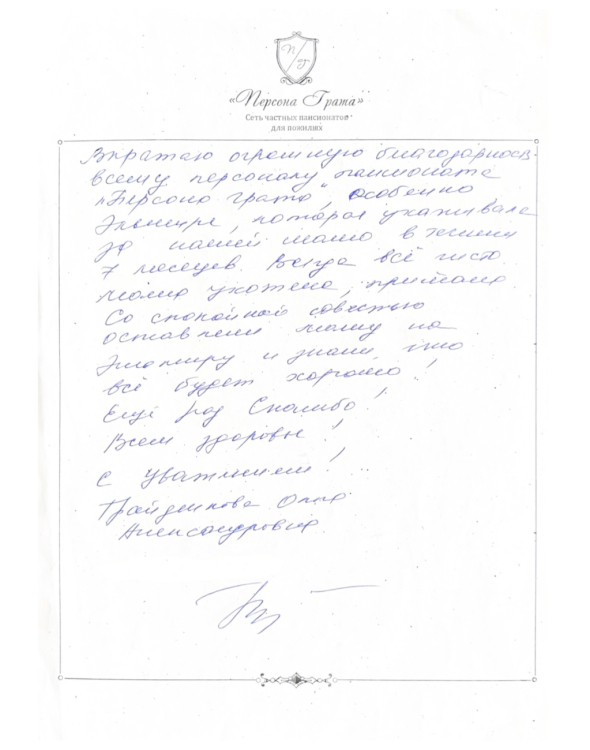 «Персона Грата»
Сеть частных пансионатов
для пожилых
Выражаю огромную благодарность
всему персоналу пансионата
"Персона грата", особенно
Эльмире, которая ухаживала
за нашей мамо в течении
7 месяцев. Всегда всё чисто
мама ухожена,
Со спокойной совестью
оставляли маму на
Эльмиру и знали что
всё будет хорошо!
Ещё раз Спасибо!
Всем здоровья!
С уважением!
Ольга
Александровна